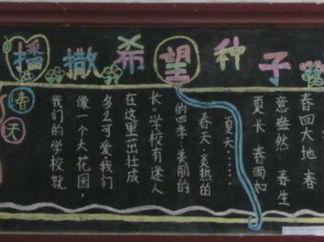 播撒希望种子
春天
我们的学校就
像一个大花园,
多么可爱,我们
在这里茁壮成
长,学校有迷人
的四季:美丽的
春天、炎热的
夏天……
春回大地 春
意盎然 春生
夏长 春雨如